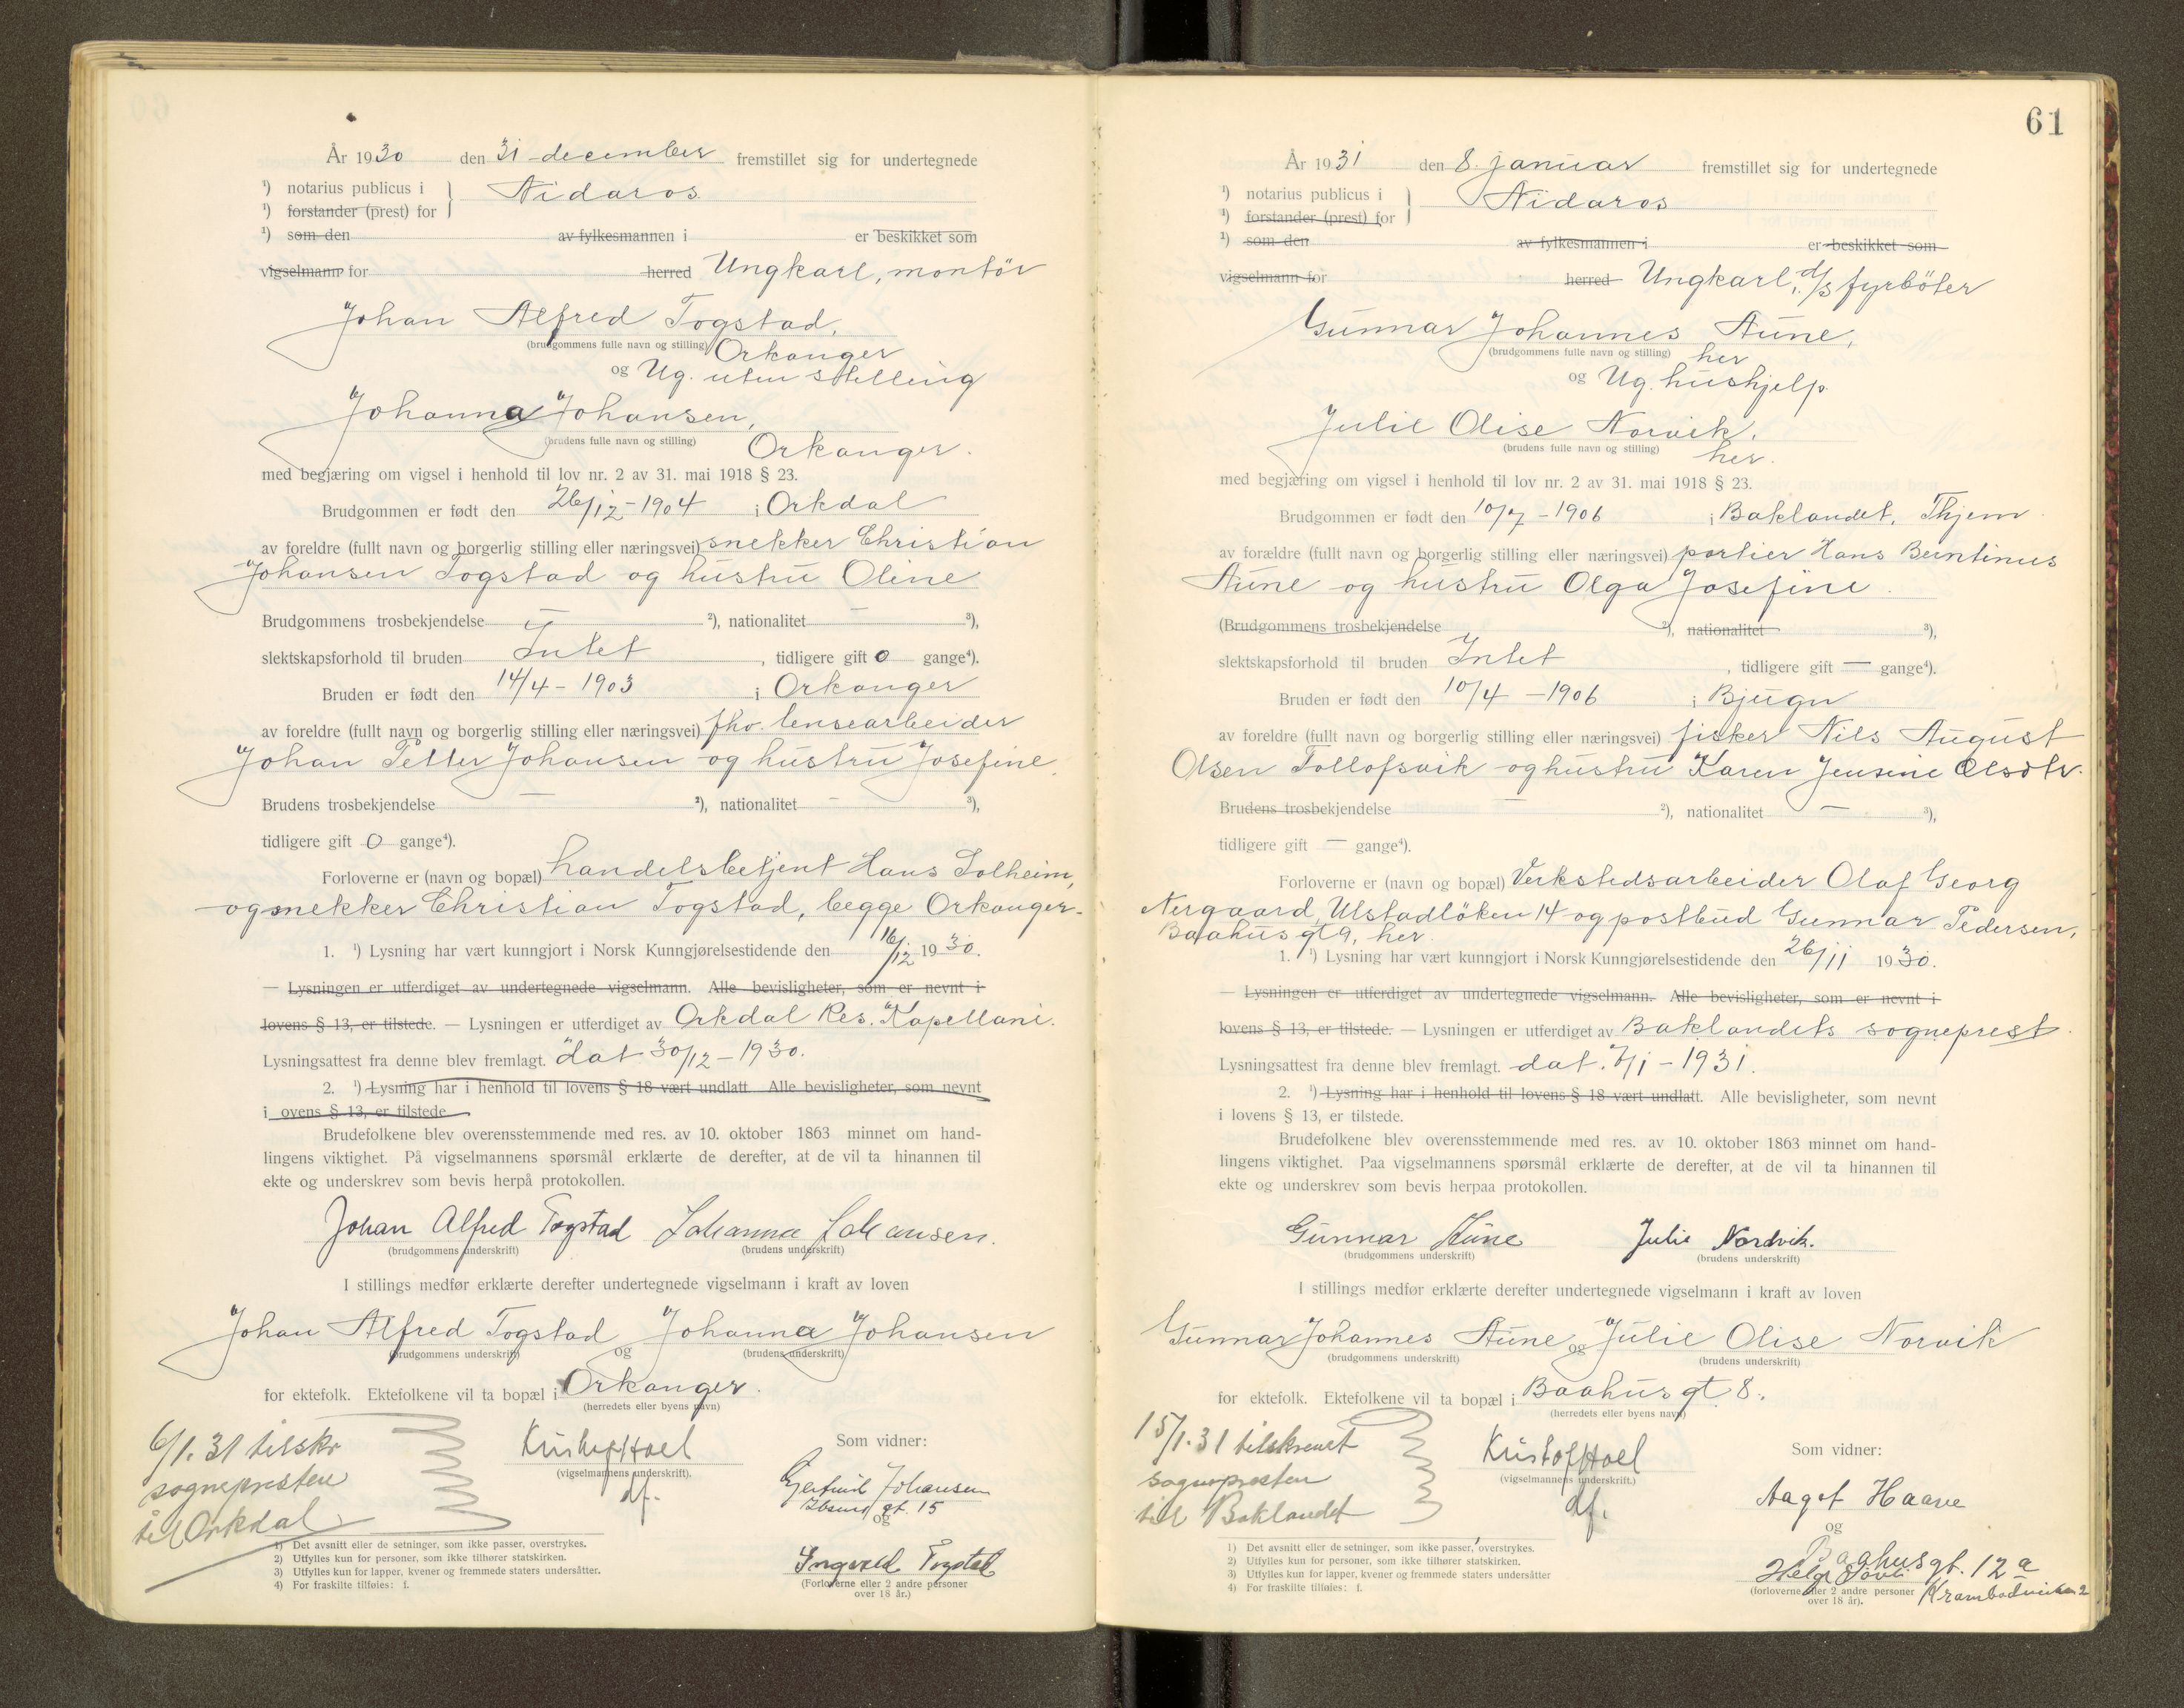 År 1930 den 31 december fremstillet sig for undertegnede
¹) notarius publicus i } Nidaros
¹) forstander (prest) for
¹) som den av fylkesmannen i er beskikket som
vigselmann for herred Ungkarl, montör
Johan Alfred Togstad,
(brudgommens fulle navn og stilling) Orkanger
og Ug. uten stilling
Johanna Johansen,
(brudens fulle navn og stilling) Orkanger.
med begjæring om vigsel i henhold til lov nr. 2 av 31. mai 1918 § 23.
Brudgommen er født den 26/12-1904 i Orkdal
av foreldre (fullt navn og borgerlig stilling eller næringsvei) snekker Christian
Johansen Togstad og hustru Oline
Brudgommens trosbekjendelse — ²), nationalitet — ³),
slektskapsforhold til bruden Intet, tidligere gift 0 gange⁴).
Bruden er født den 14/4-1903 i Orkanger
av foreldre (fullt navn og borgerlig stilling eller næringsvei) fhv. lensearbeider
Johan Petter Johansen og hustru Josefine.
Brudens trosbekjendelse — ²), nationalitet — ³),
tidligere gift 0 gange⁴).
Forloverne er (navn og bopæl) handelsbetjent Hans Solheim,
og snekker Christian Togstad, begge Orkanger.
1. ¹) Lysning har vært kunngjort i Norsk Kunngjørelsestidende den 16/12 1930.
— Lysningen er utferdiget av undertegnede vigselmann. Alle bevisligheter, som er nevnt i
lovens § 13, er tilstede. — Lysningen er utferdiget av Orkdal Res. Kapellani.
Lysningsattest fra denne blev fremlagt. dat 30/12-1930.
2. ¹) Lysning har i henhold til lovens § 18 vært undlatt Alle bevisligheter, som nevnt
i ovens § 13, er tilstede
Brudefolkene blev overensstemmende med res. av 10. oktober 1863 minnet om hand-
lingens viktighet. På vigselmannens spørsmål erklærte de derefter, at de vil ta hinannen til
ekte og underskrev som bevis herpå protokollen.
Johan Alfred Togstad Johanna Johansen.
(brudgommens underskrift) (brudens underskrift)
I stillings medfør erklærte derefter undertegnede vigselmann i kraft av loven
Johan Alfred Togstad og Johanna Johansen
(brudgommens underskrift) (brudens underskrift)
for ektefolk. Ektefolkene vil ta bopæl i Orkanger.
(herredets eller byens navn)
6/1.31 tilskr
sognepresten
til Orkdal
Kristof Hoel
(vigselmannens underskrift).
df.
Som vidner:
Gertrud Johansen
Ibsens gt. 15
og
Ingvald Togstad
(Forloverne eller 2 andre personer
over 18 år.)
1) Det avsnitt eller de setninger, som ikke passer, overstrykes.
2) Utfylles kun for personer, som ikke tilhører statskirken.
3) Utfylles kun for lapper, kvener og fremmede staters undersåtter.
4) For fraskilte tilføies: f.
61
År 1931 den 8. januar fremstillet sig for undertegnede
¹) notarius publicus i } Nidaros
¹) forstander (prest) for
¹) som den av fylkesmannen i er beskikket som
vigselmann for herred Ungkarl, d/s fyrböter
Gunnar Johannes Aune,
(brudgommens fulle navn og stilling) her
og Ug. hushjelp
Julie Olise Norvik,
(brudens fulle navn og stilling) her.
med begjæring om vigsel i henhold til lov nr. 2 av 31. mai 1918 § 23.
Brudgommen er født den 10/7-1906 i Baklandet, Thjem
av forældre (fullt navn og borgerlig stilling eller næringsvei) portier Hans Berntinus
Aune og hustru Olga Josefine.
(Brudgommens trosbekjendelse ²), nationalitet ³),
slektskapsforhold til bruden Intet, tidligere gift — gange⁴).
Bruden er født den 10/4-1906 i Bjugn
av foreldre (fullt navn og borgerlig stilling eller næringsvei) fisker Nils August
Olsen Tollofsvik og hustru Karen Jensine Olsdtr.
Brudens trosbekjendelse — ²), nationalitet — ³),
tidligere gift — gange⁴).
Forloverne er (navn og bopæl) Verkstedsarbeider Olaf Georg
Nergaard, Ulstadlöken 14 og postbud Gunnar Pedersen,
Baahus gt 9, her.
1. ¹) Lysning har vært kunngjort i Norsk Kunngjørelsestidende den 26/11 1930.
— Lysningen er utferdiget av undertegnede vigselmann. Alle bevisligheter, som er nevnt i
lovens § 13, er tilstede. — Lysningen er utferdiget av Baklandets sogneprest.
Lysningsattest fra denne blev fremlagt. dat. 7/1-1931.
2. ¹) Lysning har i henhold til lovens § 18 vært undlatt. Alle bevisligheter, som nevnt
i lovens § 13, er tilstede.
Brudefolkene blev overensstemmende med res. av 10. oktober 1863 minnet om hand-
lingens viktighet. Paa vigselmannens spørsmål erklærte de derefter, at de vil ta hinannen til
ekte og underskrev som bevis herpaa protokollen.
Gunnar Aune Julie Nordvik.
(brudgommens underskrift) (brudens underskrift)
I stillings medfør erklærte derefter undertegnede vigselmann i kraft av loven
Gunnar Johannes Aune og Julie Olise Norvik
(brudgommens underskrift) (brudens underskrift)
for ektefolk. Ektefolkene vil ta bopæl i Baahus gt 8.
(herredets eller byens navn)
15/1.31 tilskrevet
sognepresten
til Baklandet
Kristof Hoel
(vigselmannens underskrift.)
df.
Som vidner:
Aagot Haave
og
Baahusgt. 12 a
Helge
(forloverne eller 2 andre personer
over 18 år).
1) Det avsnitt eller de setninger, som ikke passer, overstrykes.
2) Utfylles kun for personer, som ikke tilhører statskirken.
3) Utfylles kun for lapper, kvener og fremmede staters undersåtter
4) For fraskilte tilføies: f.